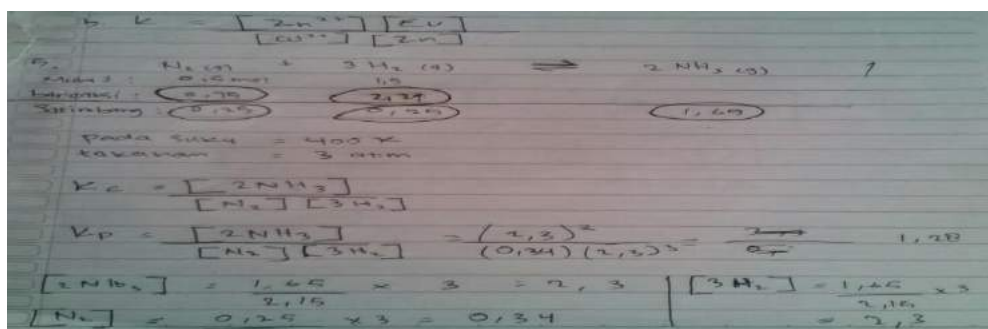 b. K = [Zn²⁺] [Cu] / [Cu²⁺] [Zn]
5. N₂ (g) + 3 H₂ (g) ⇌ 2 NH₃ (g)
Mula2 : 0,5 mol 1,5
bereaksi : 2,29
Setimbang : 0,25 1,65
pada suhu = 400 K
tekanan = 3 atm
Kc = [2NH₃] / [N₂] [3H₂]
Kp = [2NH₃] / [N₂] [3H₂] = (2,3)² / (0,34) (2,3)³ = 1,28
[2NH₃] = 1,65 / 2,15 × 3 = 2,3
[3H₂] = 1,65 / 2,15 × 3 = 2,3
[N₂] = 0,25 × 3 = 0,34